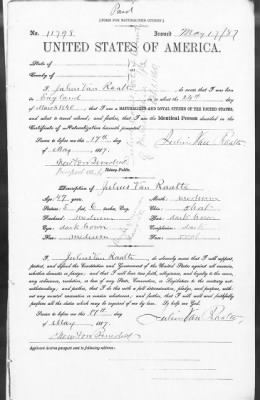 Paid
[FORM FOR NATURALIZED CITIZEN.]
No. 11798 Issued May 17/87
UNITED STATES OF AMERICA.
State of
County of
I, Julius Van Raalte, do swear that I was born
in England on or about the 24th day
of March 1840; that I am a NATURALIZED AND LOYAL CITIZEN OF THE UNITED STATES,
and about to travel abroad; and further, that I am the Identical Person described in the
Certificate of Naturalization herewith presented.
Sworn to before me this 17th day
of May, 1887.
Julius Van Raalte
Newton Benedict
Notary Public.
Description of Julius Van Raalte
Age: 47 years. Mouth: medium
Stature: 5 feet, 6 inches, Eng. Chin:
Forehead: medium Hair: dark brown
Eyes: dark brown Complexion: dark
Nose: medium Face: oval
I, Julius Van Raalte, do solemnly swear that I will support,
protect, and defend the Constitution and Government of the United States against all enemies,
whether domestic or foreign; and that I will bear true faith, allegiance, and loyalty to the same,
any ordinance, resolution, or law of any State, Convention, or Legislature to the contrary not-
withstanding; and further, that I do this with a full determination, pledge, and purpose, with-
out any mental reservation or evasion whatsoever; and further, that I will well and faithfully
perform all the duties which may be required of me by law. So help me God.
Sworn to before me this 17th day
of May, 1887.
Julius Van Raalte
Newton Benedict
Applicant desires passport sent to following address: